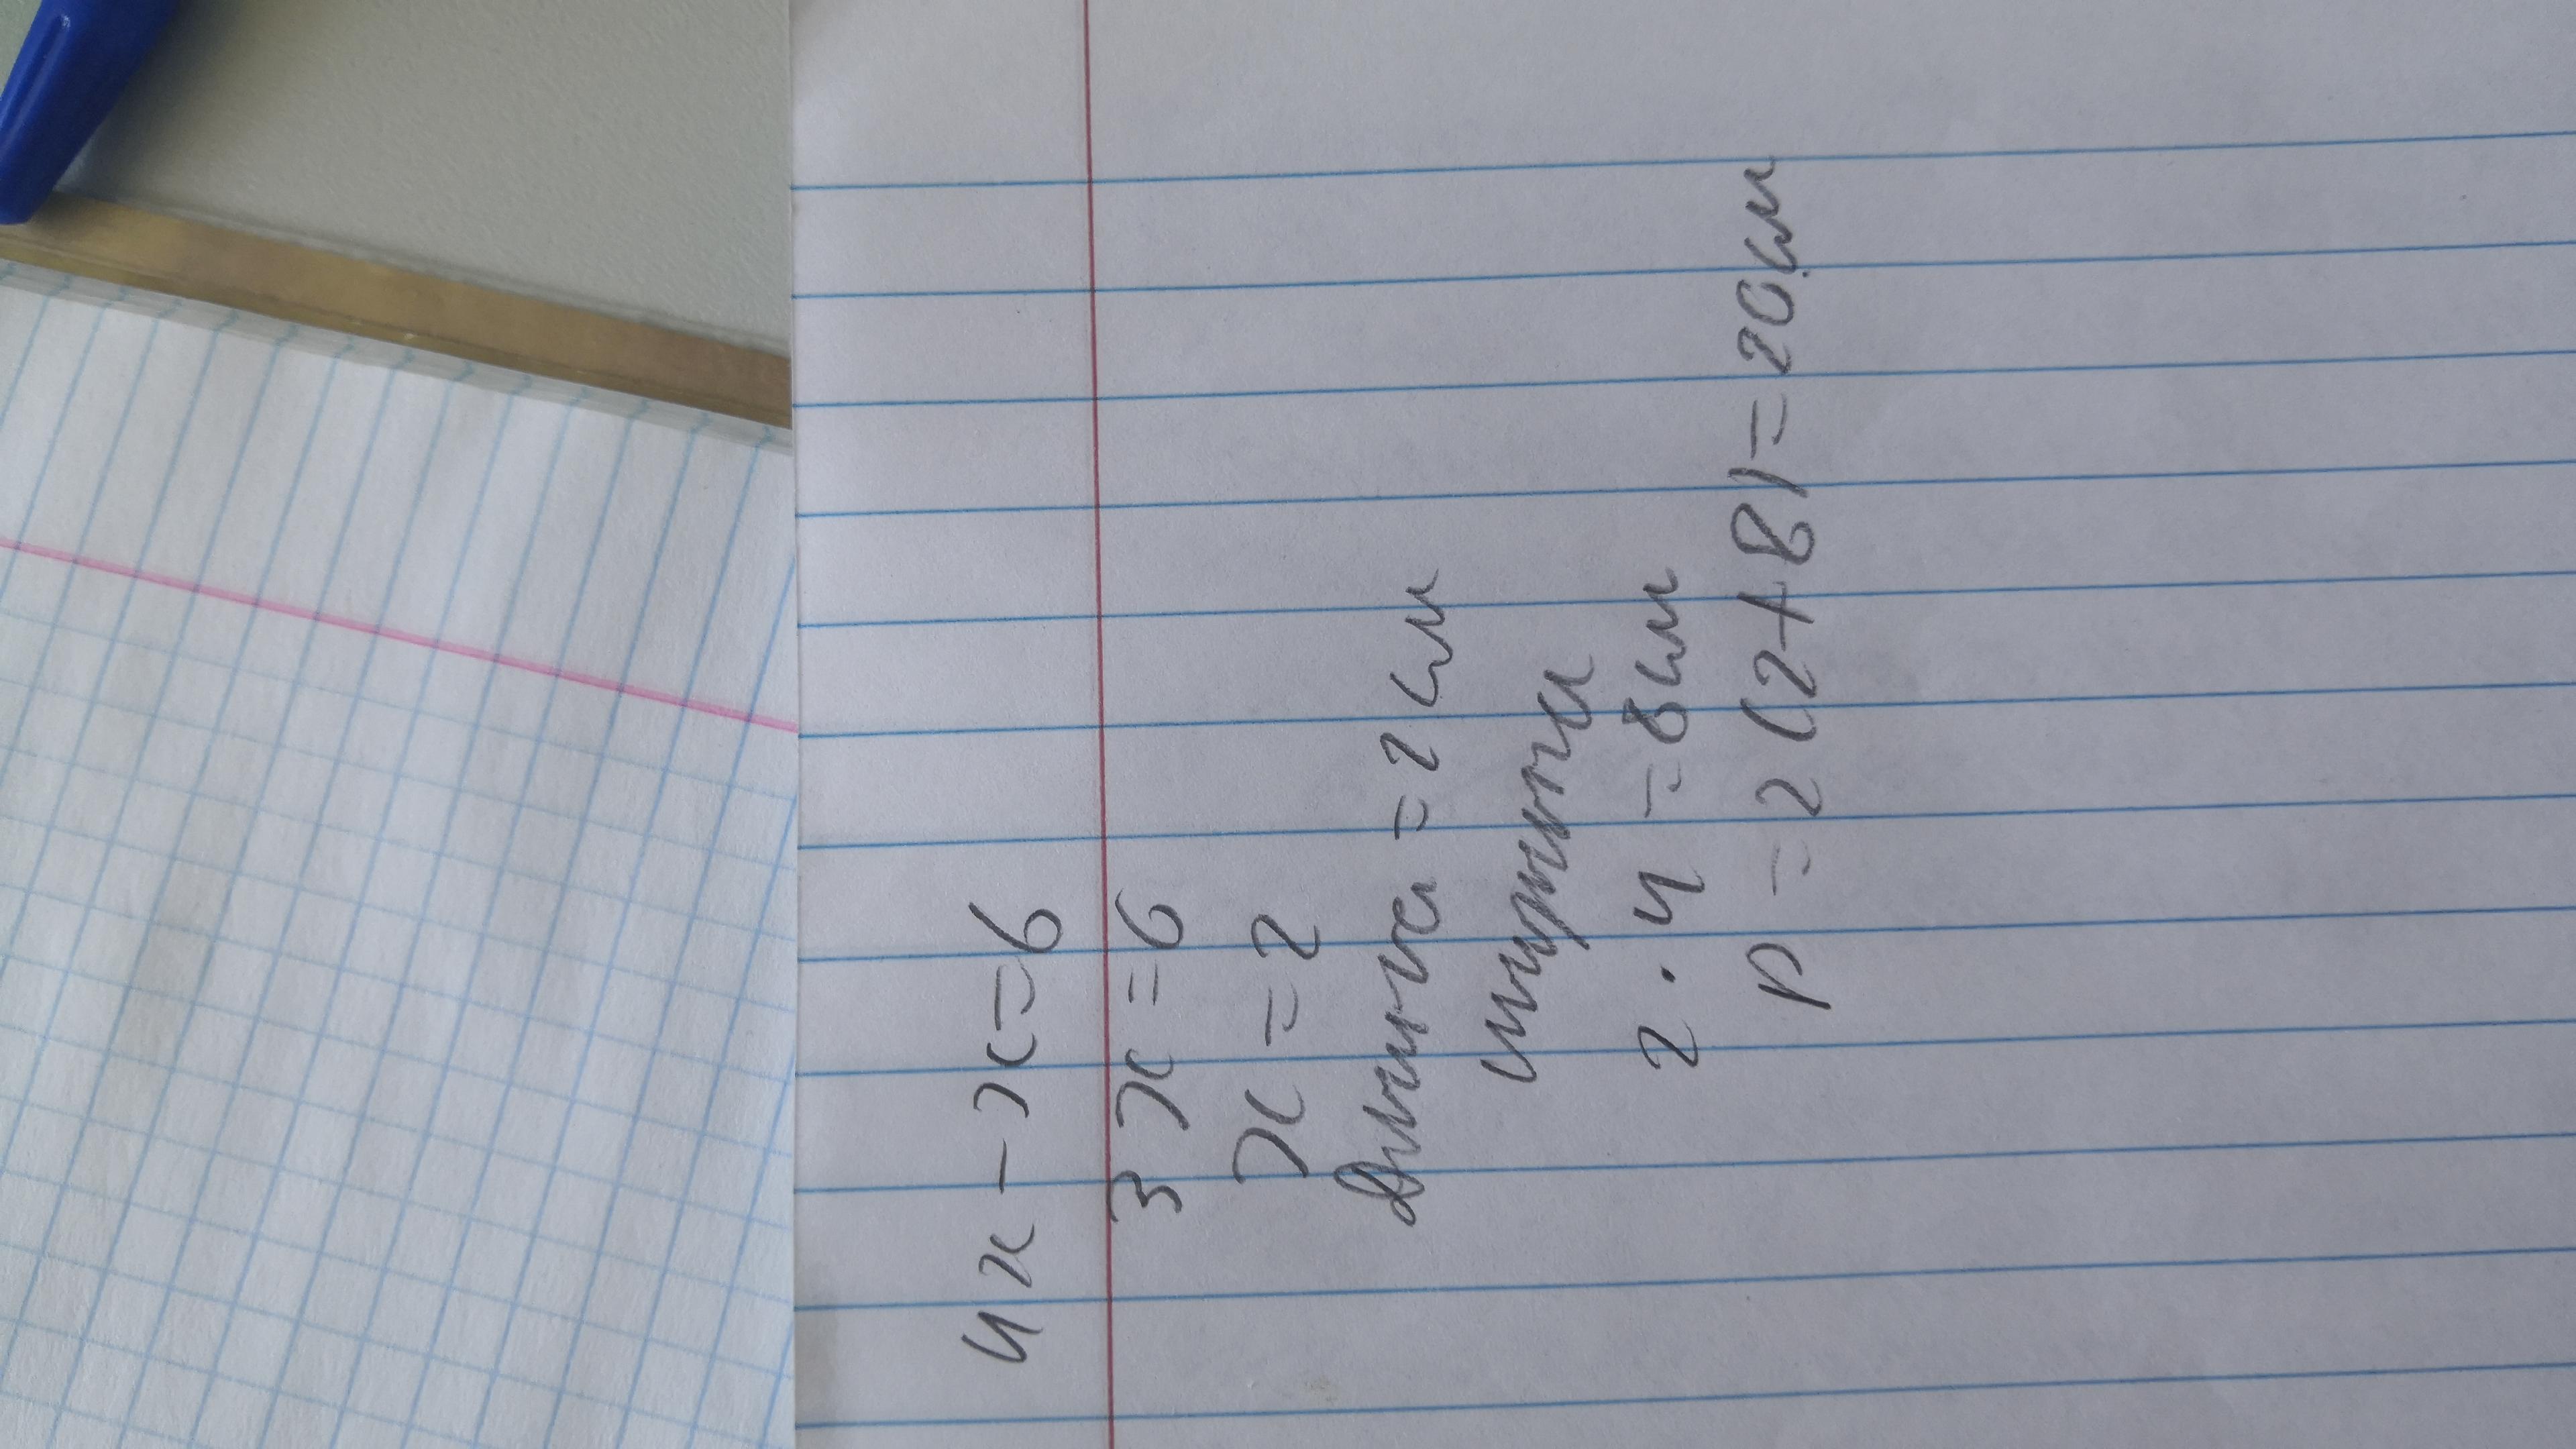 4x - x = 6
3x = 6
x = 2
Длинна = 2 см
ширины
2 · 4 = 8 см
P = 2 (2 + 8) = 20 см